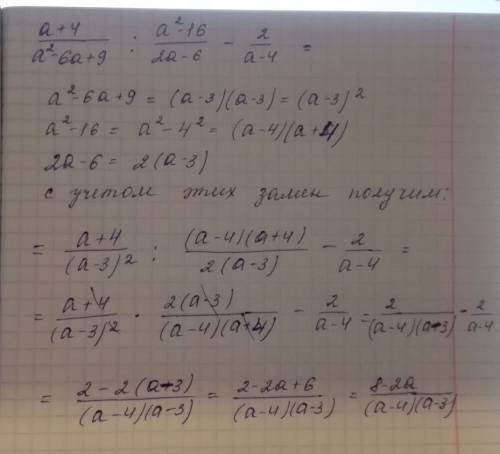 (a+4)/(a²-6a+9) : (a²-16)/(2a-6) - 2/(a-4) =
a²-6a+9 = (a-3)(a-3) = (a-3)²
a²-16 = a²-4² = (a-4)(a+4)
2a-6 = 2(a-3)
с учетом этих замен получим:
= (a+4)/(a-3)² : (a-4)(a+4)/2(a-3) - 2/(a-4) =
= (a+4)/(a-3)² · 2(a-3)/(a-4)(a+4) - 2/(a-4) = 2/(a-4)(a-3) - 2/(a-4)
= (2-2(a-3))/(a-4)(a-3) = (2-2a+6)/(a-4)(a-3) = (8-2a)/(a-4)(a-3)